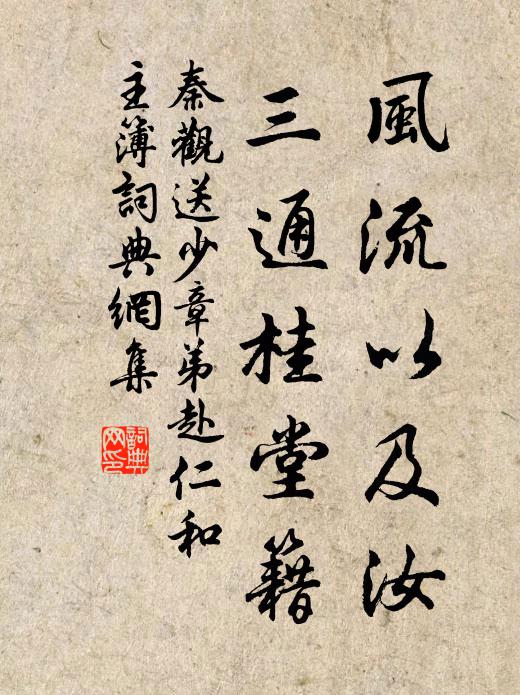 風流以及汝
三通桂堂籍
秦觀送少章弟赴仁和
主簿詞典網集
詞典網印